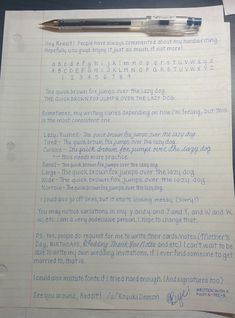 Hey Reddit! People have always commented about my handwriting.
Hopefully you guys enjoy it just as much, if not more!
a b c d e f g h i j k l m n o p q r s t u v w x y z
A B C D E F G H I J K L M N O P Q R S T U V W X Y Z
1 2 3 4 5 6 7 8 9
The quick brown fox jumps over the lazy dog.
THE QUICK BROWN FOX JUMPS OVER THE LAZY DOG.
Sometimes, my writing varies depending on how I'm feeling, but this
is the most consistent one.
Lazy/Rushed - The quick brown fox jumps over the lazy dog.
Tired - The quick brown fox jumps over the lazy dog.
Cursive - The quick brown fox jumps over the lazy dog
this needs more practice.
Small - The quick brown fox jumps over the lazy dog.
Large - The quick brown fox jumps over the lazy dog.
Wide - The quick brown fox jumps over the lazy dog.
Narrow - The quick brown fox jumps over the lazy dog.
I could also go off lines, but it starts looking messy. (Sorry!)
You may notice variations in my y and y and 7 and 7, W and W
w, etc. I am a very indecisive person, I hope to change that.
PS: Yes, people do request for me to write their cards/notes (Mother's
Day, BIRTHDAYS, Wedding Thank You Notes and etc.) I can't wait to be
able to write my own wedding invitations, if I ever find someone to get
married to, that is.
I could also imitate fonts if I tried hard enough. (And signatures too)
See you around, Reddit! /u/Koyuki Demon
Bye!
WRITTEN WITH A
PILOT G-TEC-C